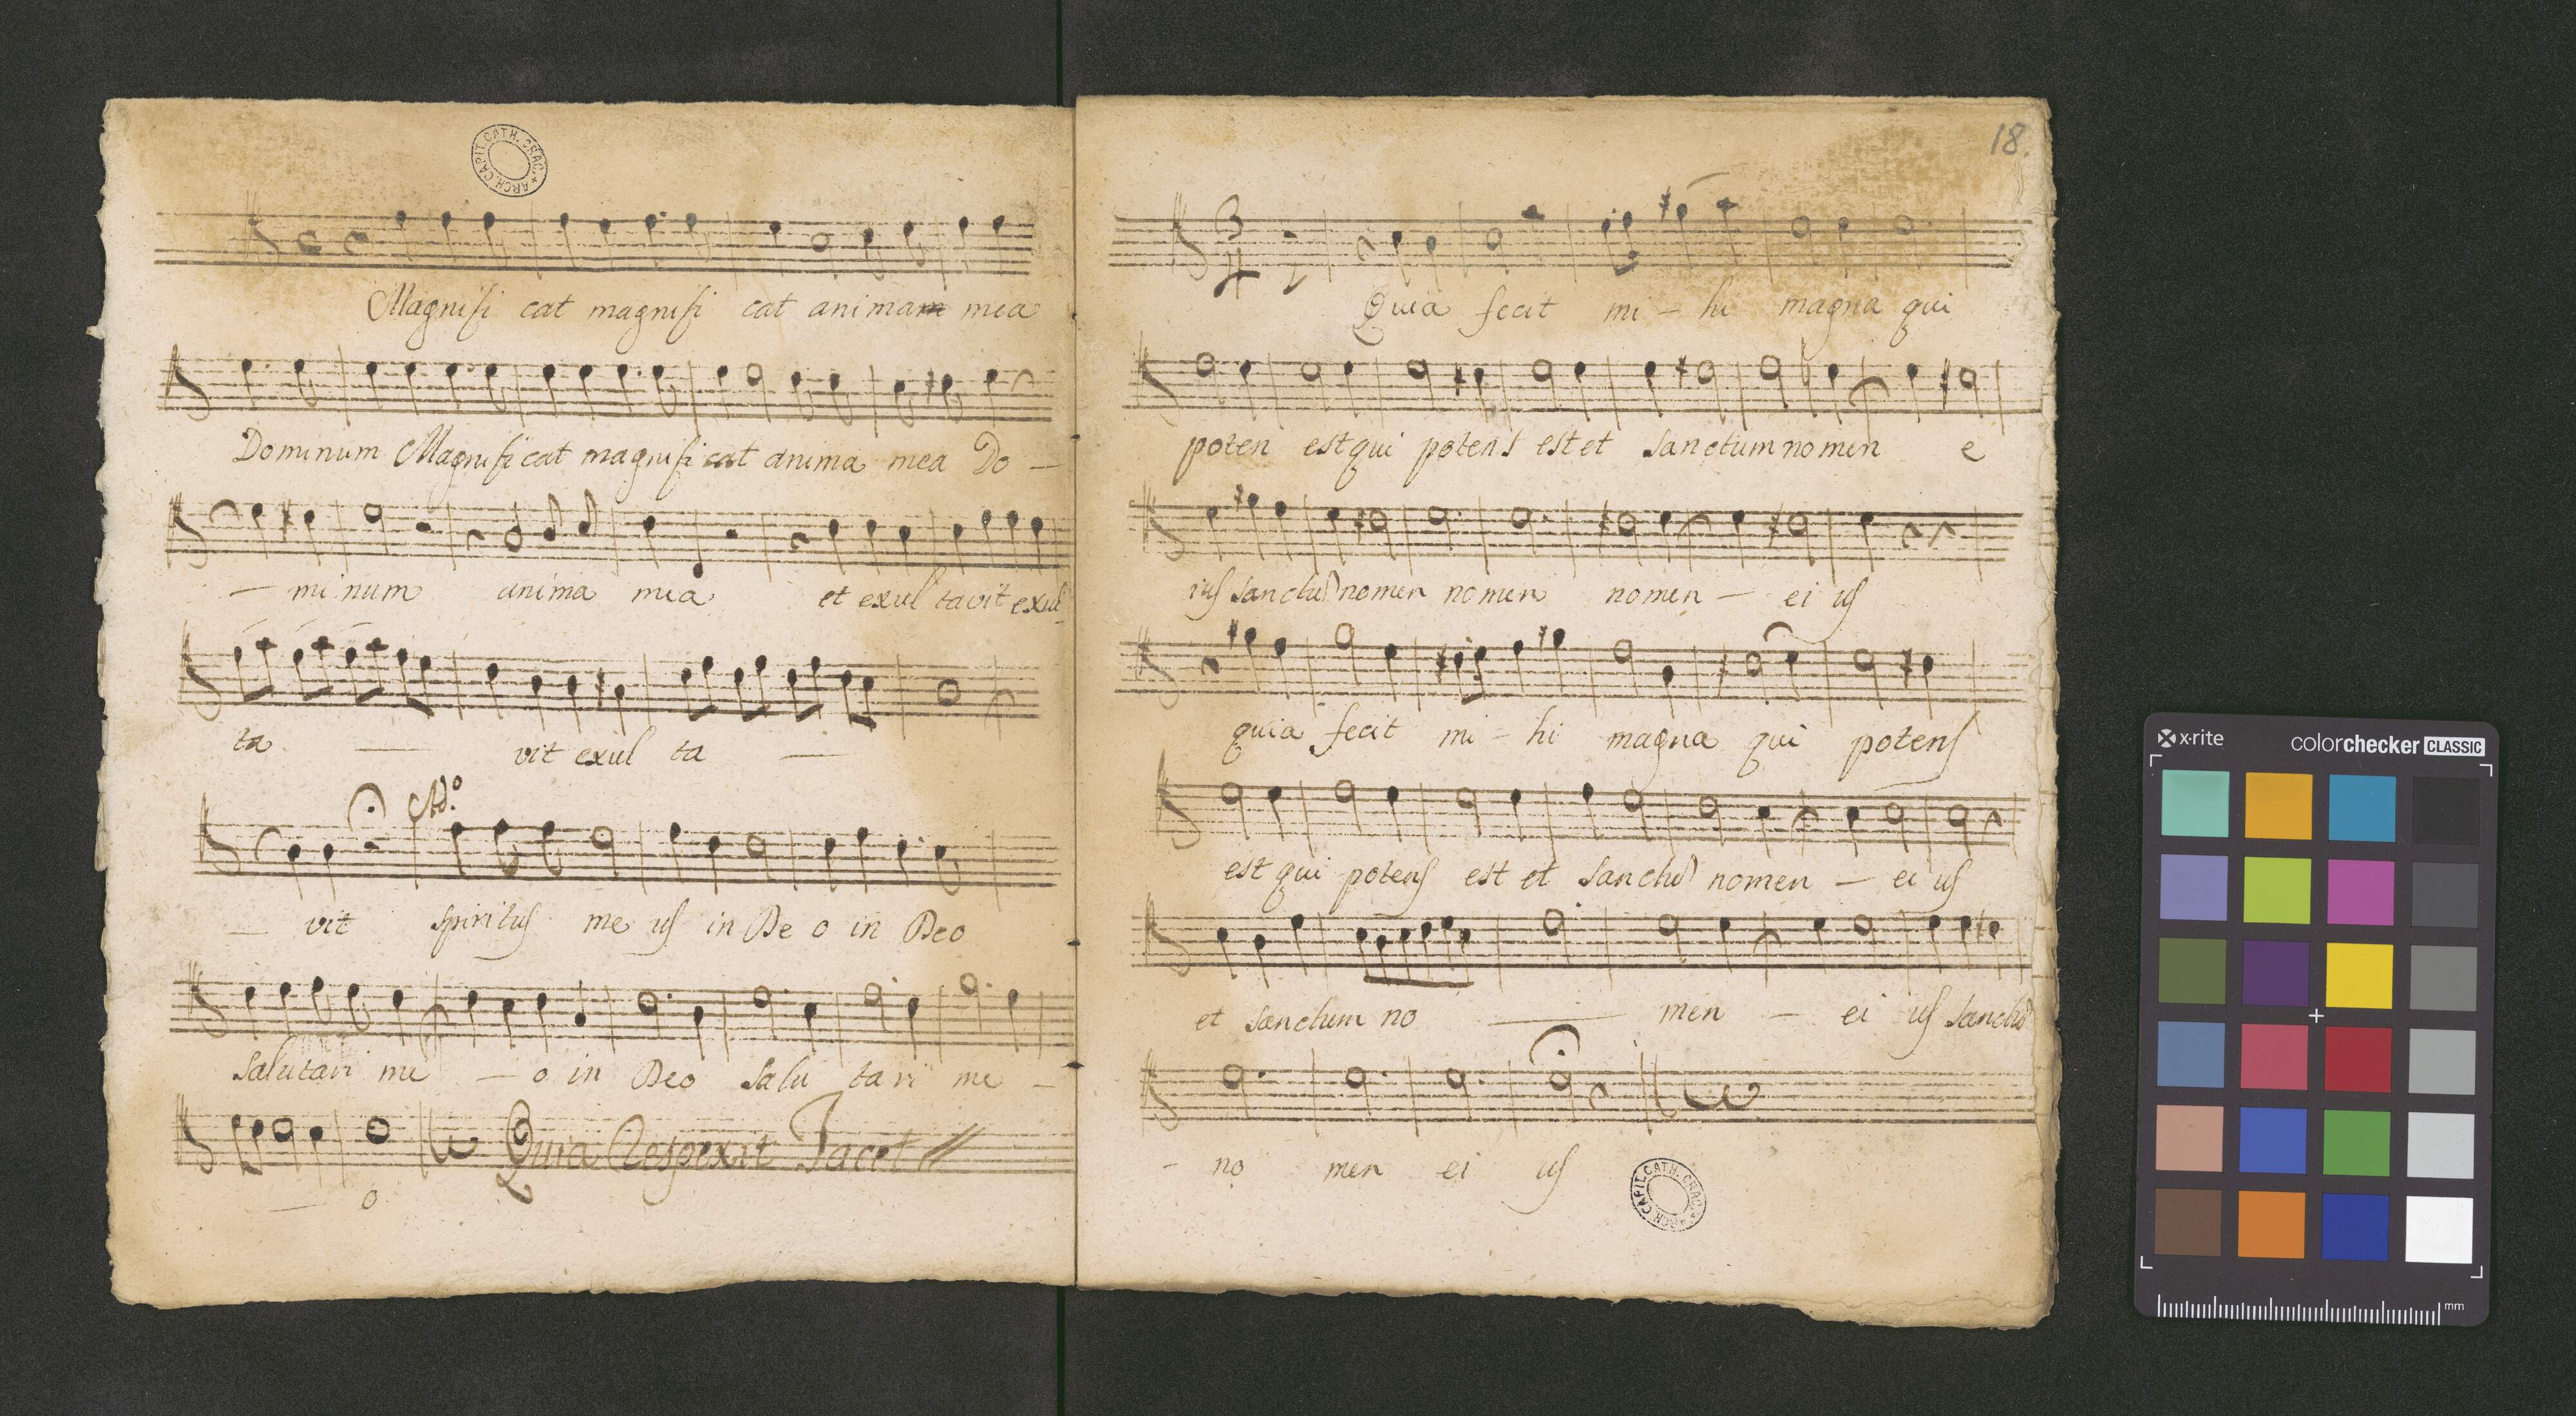 ARCH. CAPIT. CATH. CRAC.
Magnifi cat magnifi cat animam mea
Dominum Magnificat magnificat anima mea Do –
– mi num anima mea et exul tavit exul
ta — vit exul ta —
Ad.º
– vit spiritus me us in De o in Deo
salutari me – o in Deo salu ta ri me –
Quia Respexit Tacet //
— o
18.
3
4
Quia fecit mi – hi magna qui
poten est qui potens est et sanctum nomen e
ius sanctum nomen nomen nomen – ei us
quia fecit mi – hi magna qui potens
est qui potens est et sanctum nomen – ei us
et sanctum no — men – ei us sanctum
– no men ei us
ARCH. CAPIT. CATH. CRAC.
x·rite colorchecker CLASSIC
mm